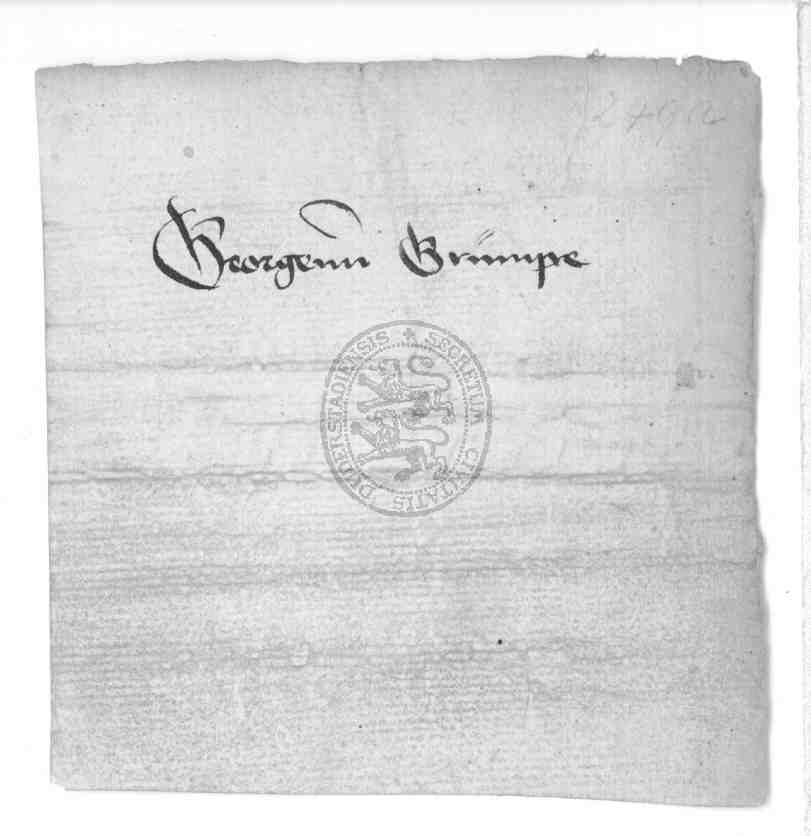 Georgenn Grümpe
SECRETUM CIVITATIS DUDERSTADIENSIS